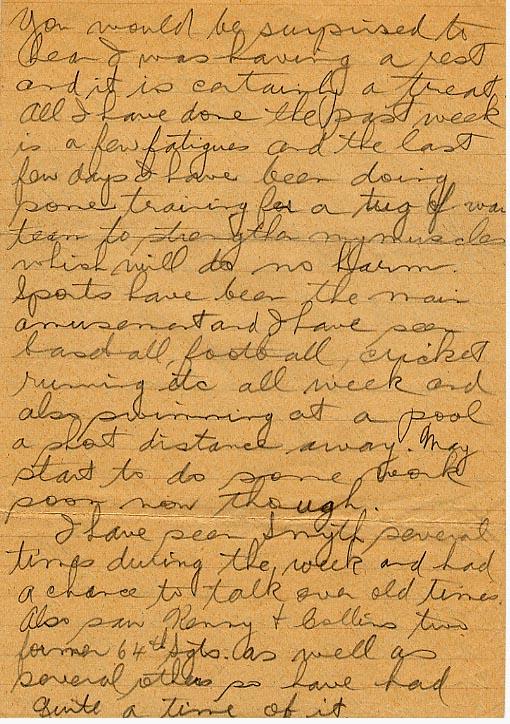 You would be surprised to
hear I was having a rest
and it is certainly a treat.
All I have done the past week
is a few fatigues and the last
few days I have been doing
some training for a tug of war
team to strengthen my muscles
which will do no harm.
Sports have been the main
amusement and I have seen
baseball, football, cricket
running etc all week and
also swimming at a pool
a short distance away. May
start to do some work
soon now though.
I have seen Smyth several
times during the week and had
a chance to talk over old times.
Also saw Kenny + Collins two
former 64th Sgts. as well as
several others so have had
quite a time of it